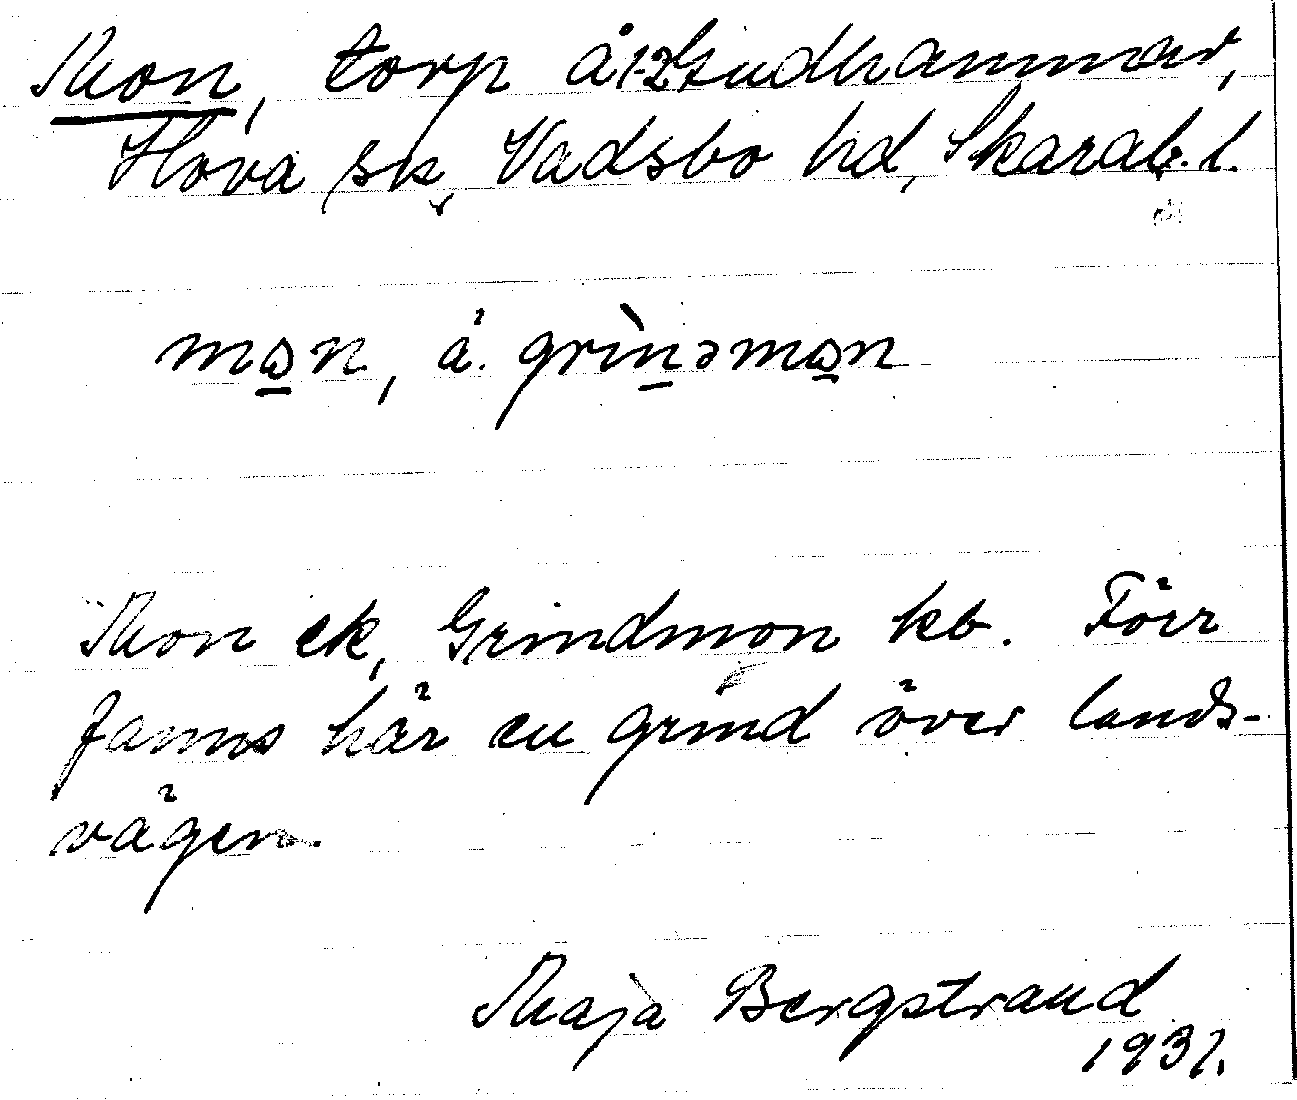 Mon, torp å 1-2 Gudhammar,
Hova sk, Vadsbo hd, Skarab. l.
mo̲n, ä. grìn̲əmo̲n
Mon ek, Grindmon kb. Förr
fanns här en grind över lands-
vägen.
Maja Bergstrand
1931.